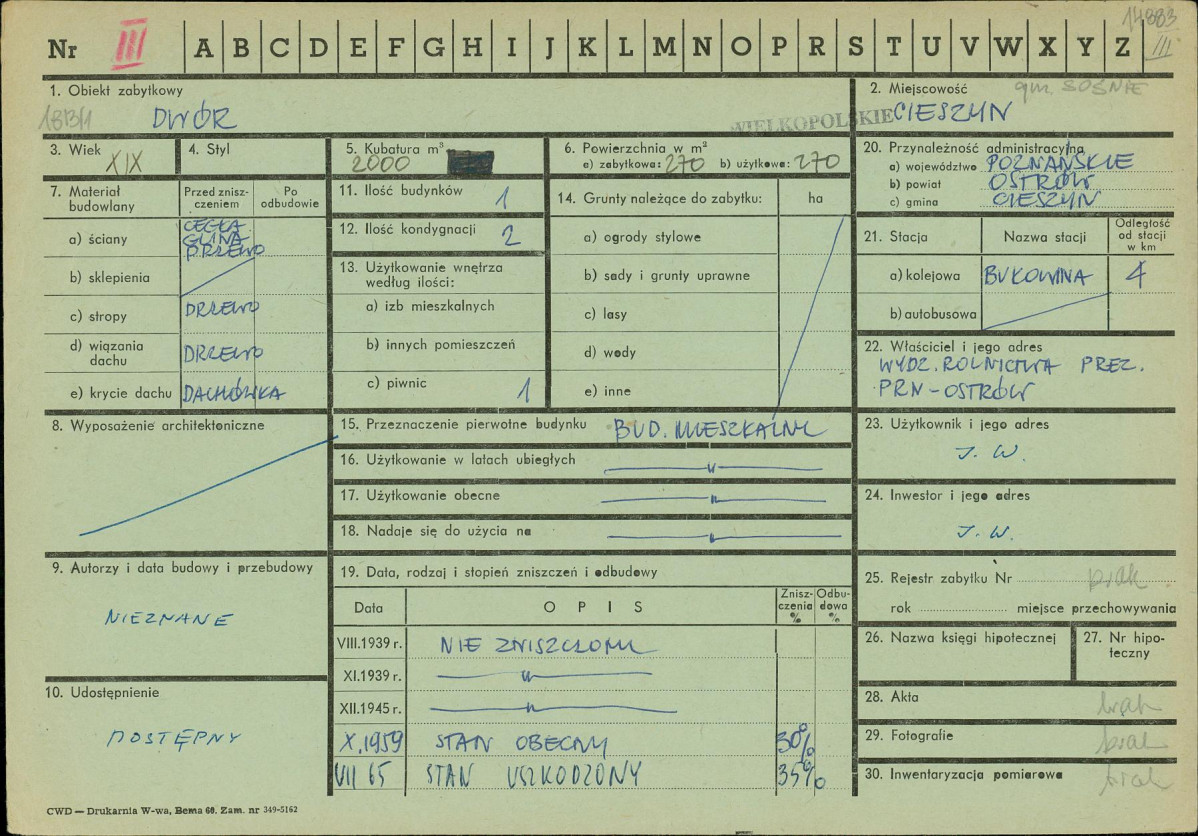 Nr III A B C D E F G H I J K L M N O P R S T U V W X Y Z
14883
III
1. Obiekt zabytkowy
DWÓR
WIELKOPOLSKIE
2. Miejscowość
gm. SOŚNIE
CIESZYN
3. Wiek
XIX
4. Styl
5. Kubatura m³
2000
6. Powierzchnia w m²
a) zabytkowa: 270 b) użytkowa: 270
20. Przynależność administracyjna
a) województwo POZNAŃSKIE
b) powiat OSTRÓW
c) gmina CIESZYN
7. Materiał budowlany
Przed zniszczeniem
Po odbudowie
a) ściany
CEGŁA
GLINA
DRZEWO
b) sklepienia
c) stropy DRZEWO
d) wiązania dachu DRZEWO
e) krycie dachu DACHÓWKA
11. Ilość budynków 1
12. Ilość kondygnacji 2
13. Użytkowanie wnętrza
według ilości:
a) izb mieszkalnych
b) innych pomieszczeń
c) piwnic 1
14. Grunty należące do zabytku: ha
a) ogrody stylowe
b) sady i grunty uprawne
c) lasy
d) wody
e) inne
21. Stacja
Nazwa stacji
Odległość od stacji w km
a) kolejowa BUKOWINA 4
b) autobusowa
22. Właściciel i jego adres
WYDZ. ROLNICTWA PREZ.
PRN-OSTRÓW
8. Wyposażenie architektoniczne
15. Przeznaczenie pierwotne budynku BUD. MIESZKALNY
16. Użytkowanie w latach ubiegłych — " —
17. Użytkowanie obecne — " —
18. Nadaje się do użycia na — " —
23. Użytkownik i jego adres
J. W.
24. Inwestor i jego adres
J. W.
9. Autorzy i data budowy i przebudowy
NIEZNANE
10. Udostępnienie
DOSTĘPNY
19. Data, rodzaj i stopień zniszczeń i odbudowy
Data
OPIS
Zniszczenia %
Odbudowa %
VIII.1939 r. NIE ZNISZCZONY
XI.1939 r. — " —
XII.1945 r. — " —
X.1959 STAN OBECNY 30%
VII 65 STAN USZKODZONY 35%
25. Rejestr zabytku Nr brak
rok miejsce przechowywania
26. Nazwa księgi hipotecznej
27. Nr hipoteczny
28. Akta brak
29. Fotografie brak
30. Inwentaryzacja pomiarowa brak
CWD — Drukarnia W-wa, Bema 60. Zam. nr 349-5162